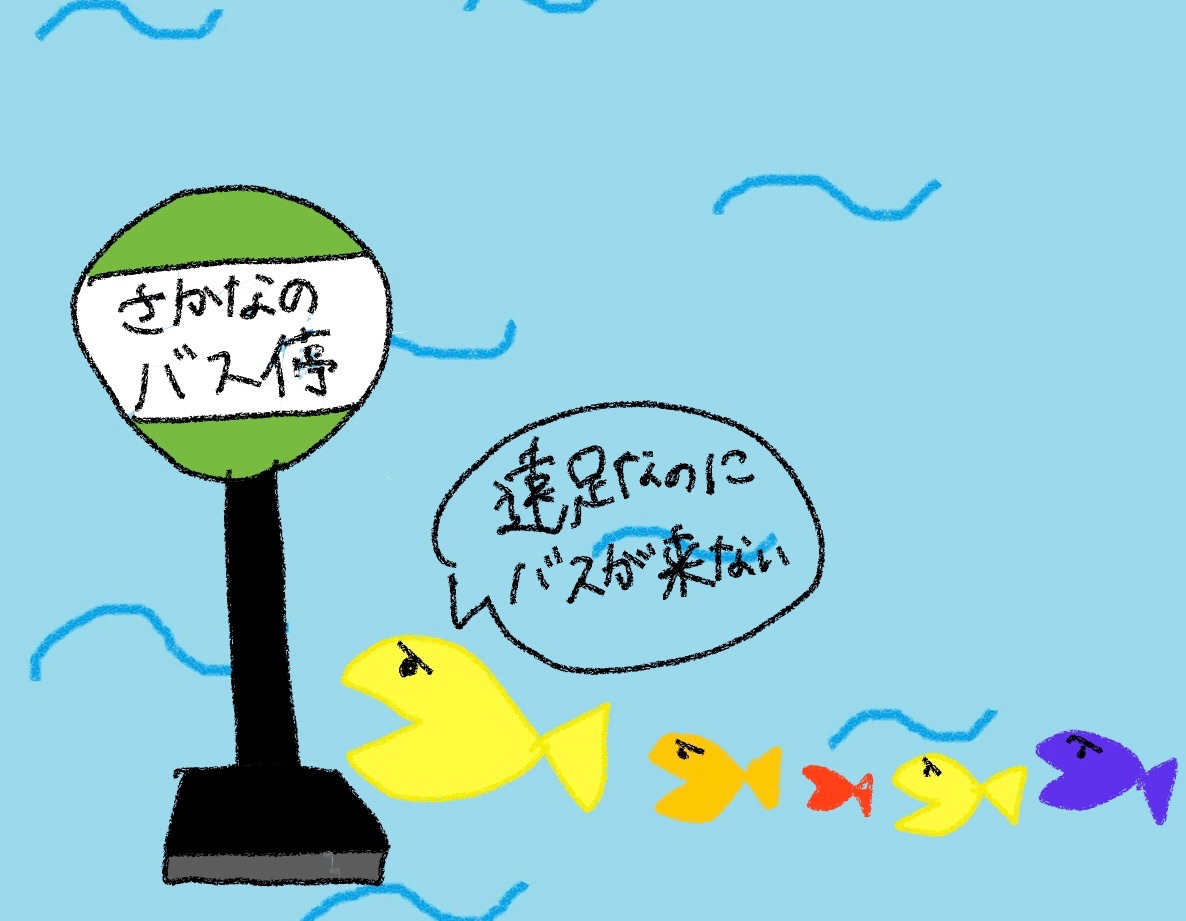 さかなの
バス停
遠足なのに
バスが来ない